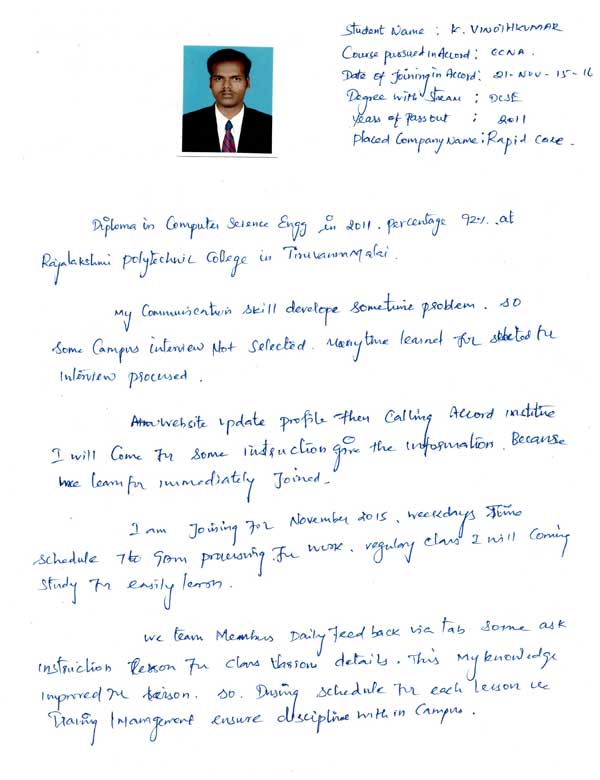 Student Name : K. VINOTHKUMAR
Course pursued in Accord : CCNA.
Date of Joining in Accord : 21-NOV-15-16
Degree with Stream : DCSE
Years of Pass out : 2011
Placed Company Name : Rapid Care.
Diploma in Computer Science Engg in 2011. percentage 92%. at
Rajalakshmi polytechnic College in Tiruvannamalai.
My Communication skill develope sometime problem. so
some Campus interview Not Selected. Many time learned for selected for
Interview processed.
website update profile then calling Accord institue
I will Come for some instruction give the information. Because
learn for immediately Joined.
I am Joining for November 2015. weekdays Time
schedule 7 to 9am processing for work. regulary class I will Coming
study for easily learn.
we team Members Daily Feed back via tab some ask
instruction lesson for class details. This My knowledge
improved for. so. During schedule for each lesson we
Training Management ensure discipline with in Campus.